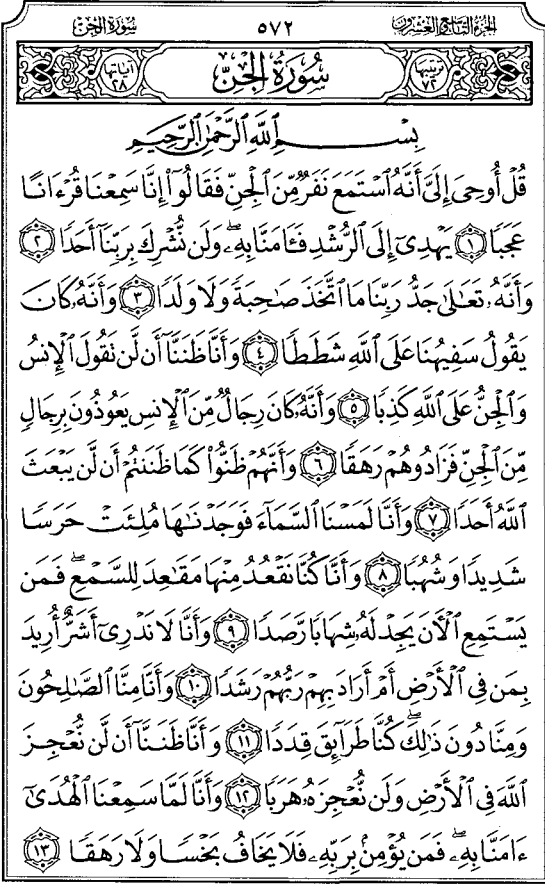 سورة الجن ٥٧٢ الجزء التاسع والعشرون
ترتيبها ٧٢ سُورَةُ الجِنّ آياتها ٢٨
بِسْمِ ٱللَّهِ ٱلرَّحْمَٰنِ ٱلرَّحِيمِ
قُلْ أُوحِىَ إِلَىَّ أَنَّهُ ٱسْتَمَعَ نَفَرٌ مِّنَ ٱلْجِنِّ فَقَالُوٓا۟ إِنَّا سَمِعْنَا قُرْءَانًا
عَجَبًا ١ يَهْدِىٓ إِلَى ٱلرُّشْدِ فَـَٔامَنَّا بِهِۦ ۖ وَلَن نُّشْرِكَ بِرَبِّنَآ أَحَدًا ٢
وَأَنَّهُۥ تَعَٰلَىٰ جَدُّ رَبِّنَا مَا ٱتَّخَذَ صَٰحِبَةً وَلَا وَلَدًا ٣ وَأَنَّهُۥ كَانَ
يَقُولُ سَفِيهُنَا عَلَى ٱللَّهِ شَطَطًا ٤ وَأَنَّا ظَنَنَّآ أَن لَّن تَقُولَ ٱلْإِنسُ
وَٱلْجِنُّ عَلَى ٱللَّهِ كَذِبًا ٥ وَأَنَّهُۥ كَانَ رِجَالٌ مِّنَ ٱلْإِنسِ يَعُوذُونَ بِرِجَالٍ
مِّنَ ٱلْجِنِّ فَزَادُوهُمْ رَهَقًا ٦ وَأَنَّهُمْ ظَنُّوا۟ كَمَا ظَنَنتُمْ أَن لَّن يَبْعَثَ
ٱللَّهُ أَحَدًا ٧ وَأَنَّا لَمَسْنَا ٱلسَّمَآءَ فَوَجَدْنَٰهَا مُلِئَتْ حَرَسًا
شَدِيدًا وَشُهُبًا ٨ وَأَنَّا كُنَّا نَقْعُدُ مِنْهَا مَقَٰعِدَ لِلسَّمْعِ ۖ فَمَن
يَسْتَمِعِ ٱلْـَٔانَ يَجِدْ لَهُۥ شِهَابًا رَّصَدًا ٩ وَأَنَّا لَا نَدْرِىٓ أَشَرٌّ أُرِيدَ
بِمَن فِى ٱلْأَرْضِ أَمْ أَرَادَ بِهِمْ رَبُّهُمْ رَشَدًا ١٠ وَأَنَّا مِنَّا ٱلصَّٰلِحُونَ
وَمِنَّا دُونَ ذَٰلِكَ ۖ كُنَّا طَرَآئِقَ قِدَدًا ١١ وَأَنَّا ظَنَنَّآ أَن لَّن نُّعْجِزَ
ٱللَّهَ فِى ٱلْأَرْضِ وَلَن نُّعْجِزَهُۥ هَرَبًا ١٢ وَأَنَّا لَمَّا سَمِعْنَا ٱلْهُدَىٰٓ
ءَامَنَّا بِهِۦ ۖ فَمَن يُؤْمِنۢ بِرَبِّهِۦ فَلَا يَخَافُ بَخْسًا وَلَا رَهَقًا ١٣